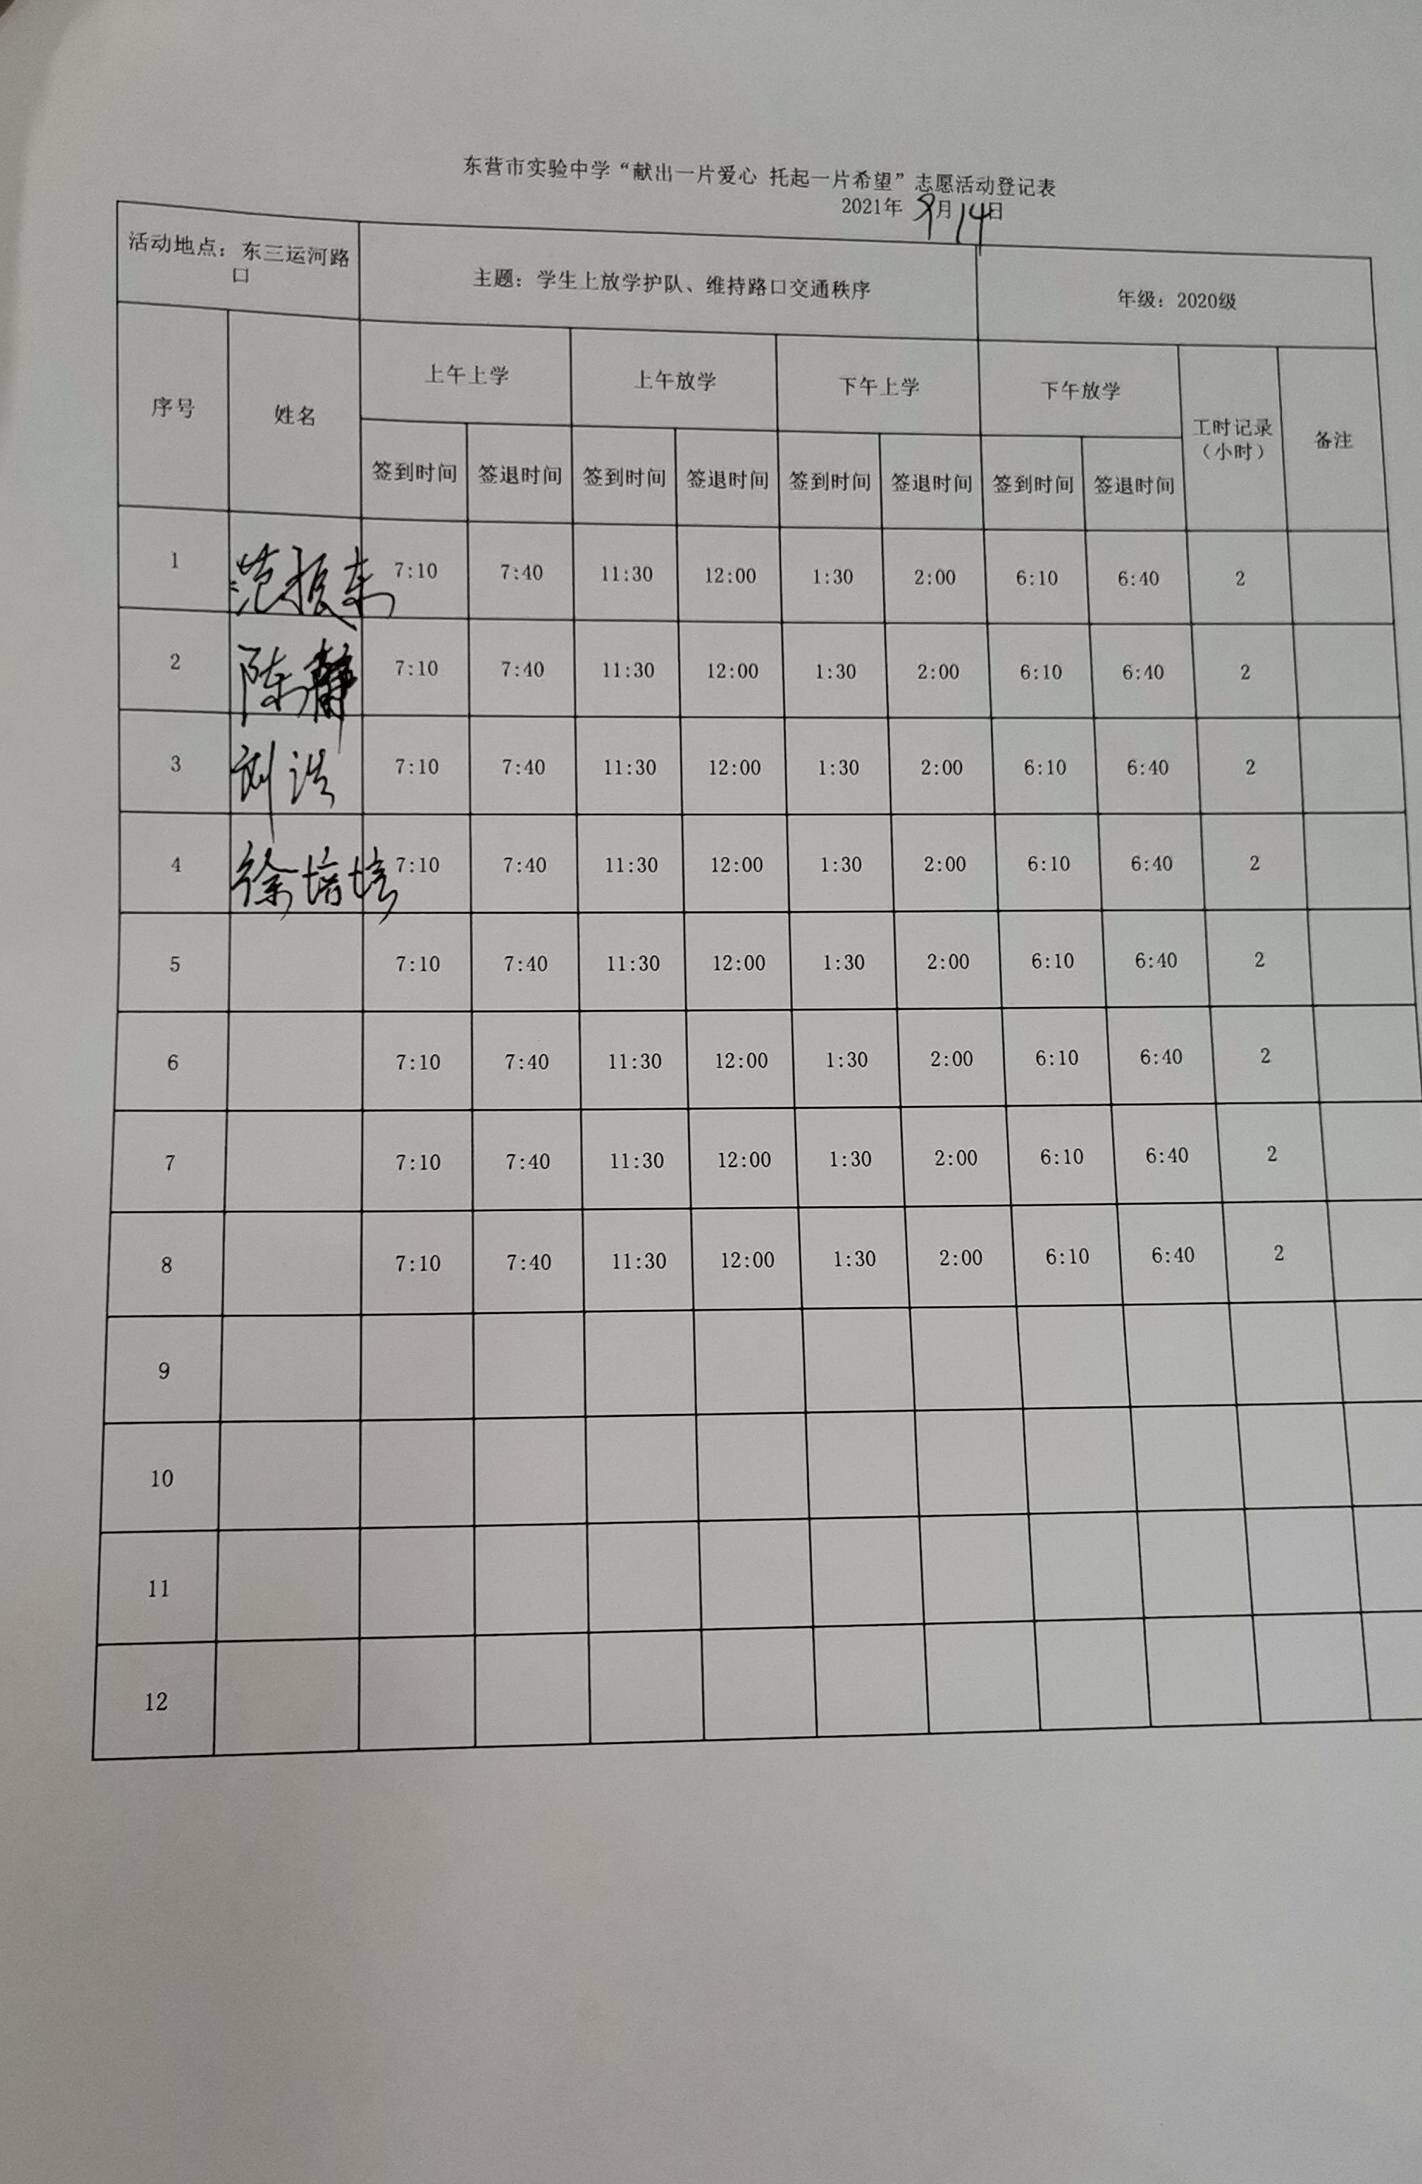 东营市实验中学“献出一片爱心 托起一片希望”志愿活动登记表
2021年 9月14日
活动地点：东三运河路口 主题：学生上放学护队、维持路口交通秩序 年级：2020级
序号 姓名 上午上学 上午放学 下午上学 下午放学 工时记录（小时） 备注
签到时间 签退时间 签到时间 签退时间 签到时间 签退时间 签到时间 签退时间
1 范振东 7:10 7:40 11:30 12:00 1:30 2:00 6:10 6:40 2
2 陈静 7:10 7:40 11:30 12:00 1:30 2:00 6:10 6:40 2
3 刘洪 7:10 7:40 11:30 12:00 1:30 2:00 6:10 6:40 2
4 徐培培 7:10 7:40 11:30 12:00 1:30 2:00 6:10 6:40 2
5 7:10 7:40 11:30 12:00 1:30 2:00 6:10 6:40 2
6 7:10 7:40 11:30 12:00 1:30 2:00 6:10 6:40 2
7 7:10 7:40 11:30 12:00 1:30 2:00 6:10 6:40 2
8 7:10 7:40 11:30 12:00 1:30 2:00 6:10 6:40 2
9
10
11
12